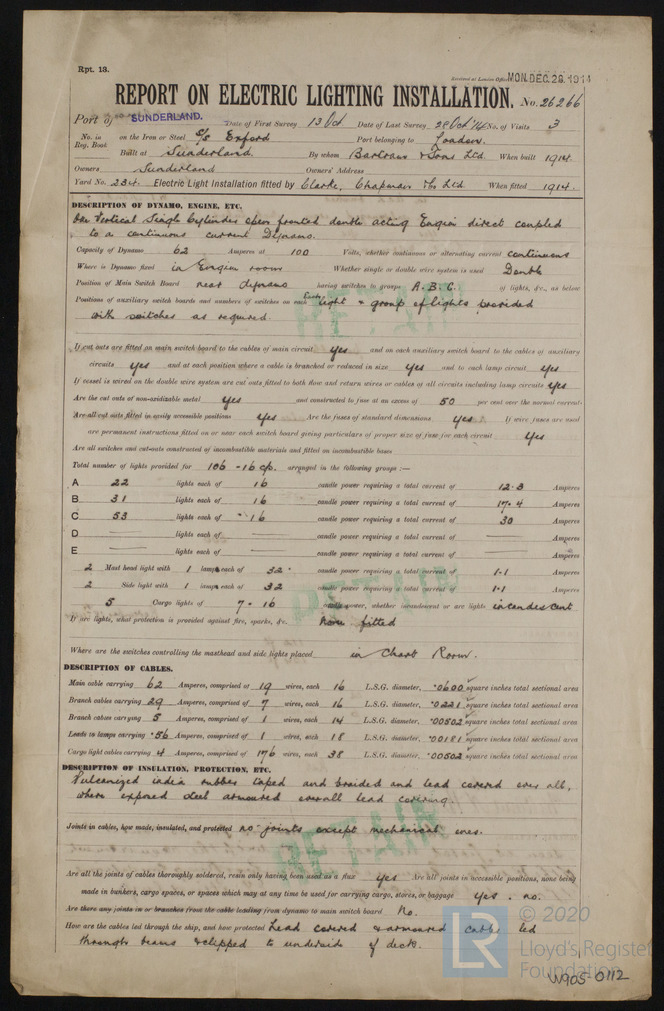 Rpt. 13.
Received at London Office MON. DEC. 28. 1914
REPORT ON ELECTRIC LIGHTING INSTALLATION. No. 26266
Port of SUNDERLAND. Date of First Survey 13 Oct Date of Last Survey 28 Oct 14 No. of Visits 3
No. in Reg. Book on the Iron or Steel S/S Exford Port belonging to London.
Built at Sunderland. By whom Bartram & Sons Ltd. When built 1914.
Owners Sunderland Owners' Address
Yard No. 234. Electric Light Installation fitted by Clarke, Chapman & Co Ltd When fitted 1914.
DESCRIPTION OF DYNAMO, ENGINE, ETC.
One Vertical Single Cylinder open fronted double acting Engine direct coupled
to a continuous current Dynamo.
Capacity of Dynamo 62 Amperes at 100 Volts, whether continuous or alternating current continuous
Where is Dynamo fixed in Engine room Whether single or double wire system is used Double
Position of Main Switch Board near dynamo having switches to groups A. B. C. of lights, &c., as below
Positions of auxiliary switch boards and numbers of switches on each Each light & group of lights provided
with switches as required.
If cut outs are fitted on main switch board to the cables of main circuit yes and on each auxiliary switch board to the cables of auxiliary
circuits yes and at each position where a cable is branched or reduced in size yes and to each lamp circuit yes
If vessel is wired on the double wire system are cut outs fitted to both flow and return wires or cables of all circuits including lamp circuits yes
Are the cut outs of non-oxidizable metal yes and constructed to fuse at an excess of 50 per cent over the normal current.
Are all cut outs fitted in easily accessible positions yes Are the fuses of standard dimensions yes If wire fuses are used
are permanent instructions fitted on or near each switch board giving particulars of proper size of fuse for each circuit yes
Are all switches and cut-outs constructed of incombustible materials and fitted on incombustible bases
Total number of lights provided for 106 - 16 cp. arranged in the following groups :—
A 22 lights each of 16 candle power requiring a total current of 12.3 Amperes
B 31 lights each of 16 candle power requiring a total current of 17.4 Amperes
C 53 lights each of 16 candle power requiring a total current of 30 Amperes
D — lights each of — candle power requiring a total current of — Amperes
E — lights each of — candle power requiring a total current of — Amperes
2 Mast head light with 1 lamps each of 32 candle power requiring a total current of 1.1 Amperes
2 Side light with 1 lamps each of 32 candle power requiring a total current of 1.1 Amperes
5 Cargo lights of 7 - 16 candle power, whether incandescent or arc lights incandescent
If arc lights, what protection is provided against fire, sparks, &c. None fitted
Where are the switches controlling the masthead and side lights placed in Chart Room.
DESCRIPTION OF CABLES.
Main cable carrying 62 Amperes, comprised of 19 wires, each 16 L.S.G. diameter, .0600 square inches total sectional area
Branch cables carrying 29 Amperes, comprised of 7 wires, each 16 L.S.G. diameter, .0221 square inches total sectional area
Branch cables carrying 5 Amperes, comprised of 1 wires, each 14 L.S.G. diameter, .00502 square inches total sectional area
Leads to lamps carrying .56 Amperes, comprised of 1 wires, each 18 L.S.G. diameter, .00181 square inches total sectional area
Cargo light cables carrying 4 Amperes, comprised of 176 wires, each 38 L.S.G. diameter, .00502 square inches total sectional area
DESCRIPTION OF INSULATION, PROTECTION, ETC.
Vulcanized india rubber taped and braided and lead covered over all,
where exposed steel armoured overall lead covering
Joints in cables, how made, insulated, and protected no joints except mechanical ones.
Are all the joints of cables thoroughly soldered, resin only having been used as a flux yes Are all joints in accessible positions, none being
made in bunkers, cargo spaces, or spaces which may at any time be used for carrying cargo, stores, or baggage yes. no.
Are there any joints in or branches from the cable leading from dynamo to main switch board No.
How are the cables led through the ship, and how protected Lead covered & armoured cable led
through beams & clipped to underside of deck.
RETAIN
RETAIN
RETAIN
LR
© 2020
Lloyd's Register
Foundation
W905-0112